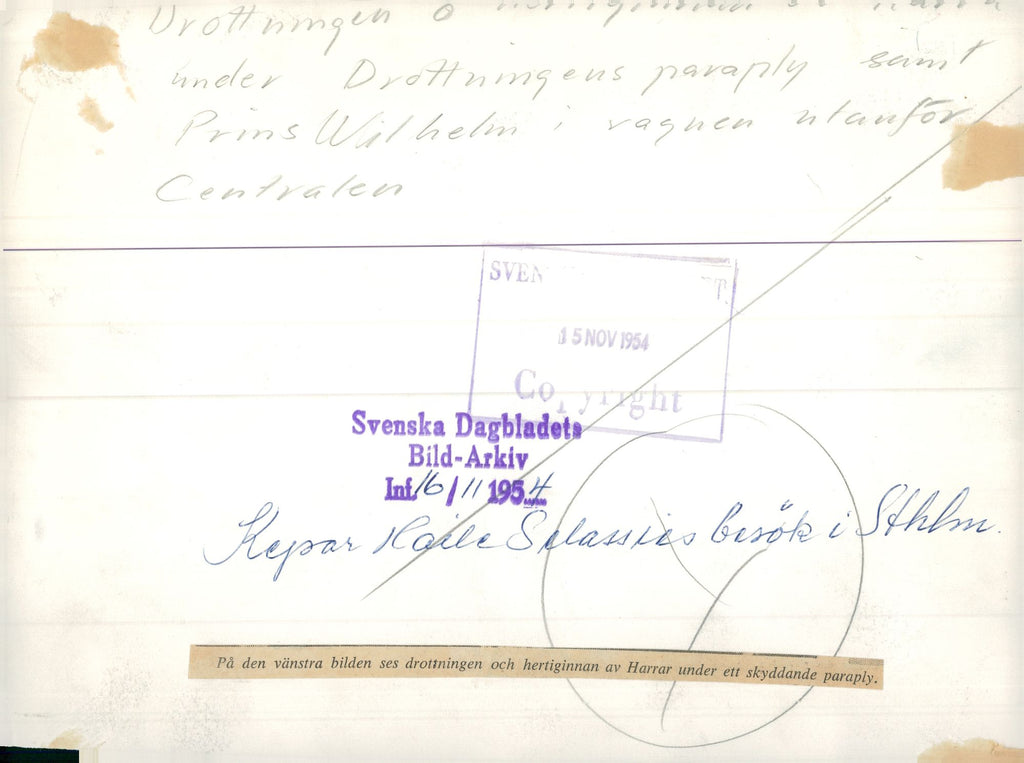 Drottningen o hertiginnan av Harra
under Drottningens paraply samt
Prins Wilhelm i vagnen utanför
Centralen
SVEN T.
15 NOV 1954
Copyright
Svenska Dagbladets
Bild-Arkiv
Inf. 16/11 1954
Kejsar Haile Selassies besök i Sthlm.
På den vänstra bilden ses drottningen och hertiginnan av Harrar under ett skyddande paraply.